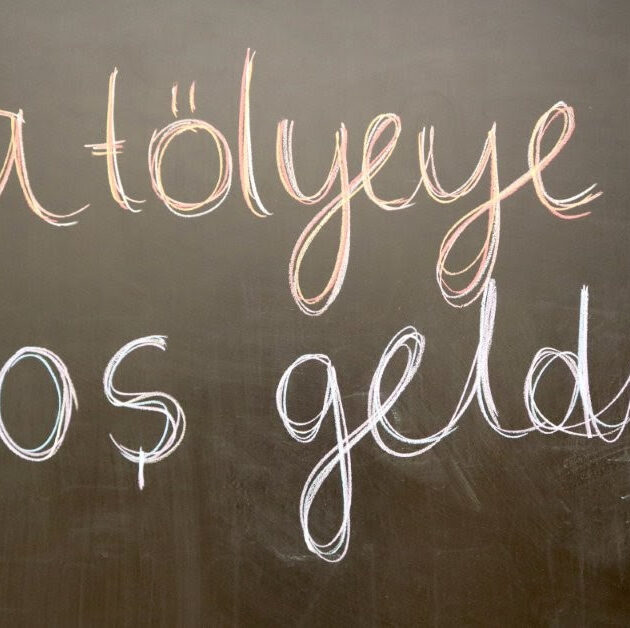 atölyeye
oş geld